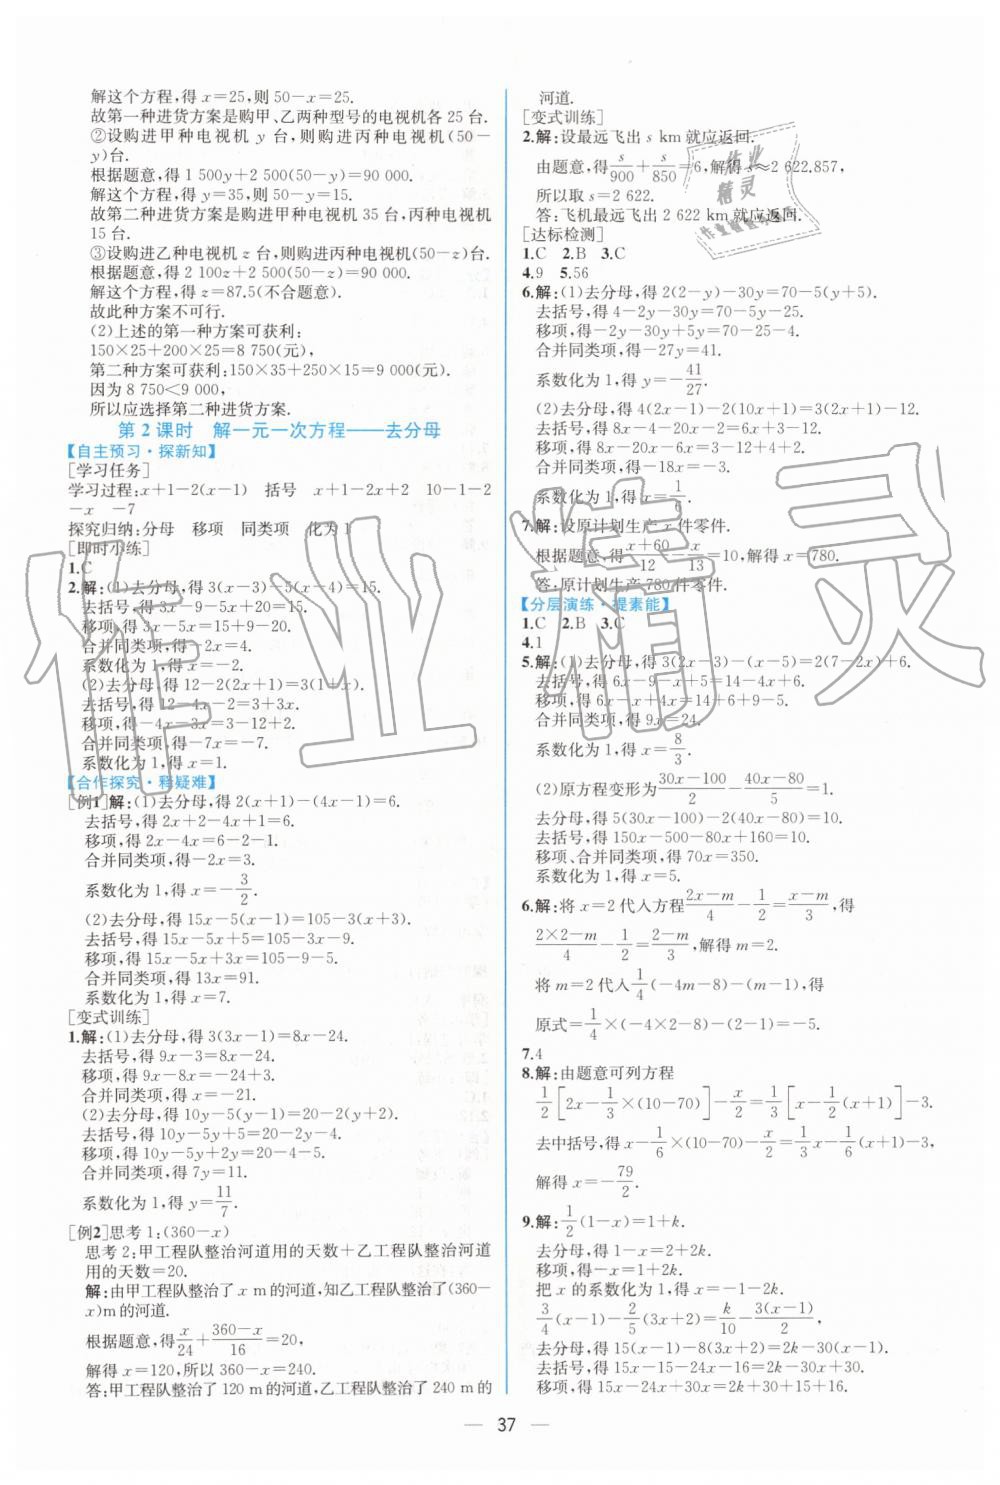 解这个方程,得 x=25,则 50-x=25.
故第一种进货方案是购甲、乙两种型号的电视机各 25 台.
②设购进甲种电视机 y 台,则购进丙种电视机(50-
y)台.
根据题意,得 1 500y+2 500(50-y)=90 000.
解这个方程,得 y=35,则 50-y=15.
故第二种进货方案是购进甲种电视机 35 台,丙种电视机
15 台.
③设购进乙种电视机 z 台,则购进丙种电视机(50-z)台.
根据题意,得 2 100z+2 500(50-z)=90 000.
解这个方程,得 z=87.5(不合题意).
故此种方案不可行.
(2)上述的第一种方案可获利:
150×25+200×25=8 750(元),
第二种方案可获利:150×35+250×15=9 000(元).
因为 8 750<9 000,
所以应选择第二种进货方案.
第 2 课时 解一元一次方程——去分母
【自主预习·探新知】
[学习任务]
学习过程:x+1-2(x-1) 括号 x+1-2x+2 10-1-2
-x -7
探究归纳:分母 移项 同类项 化为 1
[即时小练]
1.C
2.解:(1)去分母,得 3(x-3)-5(x-4)=15.
去括号,得 3x-9-5x+20=15.
移项,得 3x-5x=15+9-20.
合并同类项,得-2x=4.
系数化为 1,得 x=-2.
(2)去分母,得 12-2(2x+1)=3(1+x).
去括号,得 12-4x-2=3+3x.
移项,得-4x-3x=3-12+2.
合并同类项,得-7x=-7.
系数化为 1,得 x=1.
【合作探究·释疑难】
[例1]解:(1)去分母,得 2(x+1)-(4x-1)=6.
去括号,得 2x+2-4x+1=6.
移项,得 2x-4x=6-2-1.
合并同类项,得-2x=3.
系数化为 1,得 x=-3/2.
(2)去分母,得 15x-5(x-1)=105-3(x+3).
去括号,得 15x-5x+5=105-3x-9.
移项,得 15x-5x+3x=105-9-5.
合并同类项,得 13x=91.
系数化为 1,得 x=7.
[变式训练]
1.解:(1)去分母,得 3(3x-1)=8x-24.
去括号,得 9x-3=8x-24.
移项,得 9x-8x=-24+3.
合并同类项,得 x=-21.
(2)去分母,得 10y-5(y-1)=20-2(y+2).
去括号,得 10y-5y+5=20-2y-4.
移项,得 10y-5y+2y=20-4-5.
合并同类项,得 7y=11.
系数化为 1,得 y=11/7.
[例2]思考 1:(360-x)
思考 2:甲工程队整治河道用的天数+乙工程队整治河道
用的天数=20.
解:由甲工程队整治了 x m的河道,知乙工程队整治了(360-
x)m的河道.
根据题意,得 x/24+(360-x)/16=20,
解得 x=120,所以 360-x=240.
答:甲工程队整治了 120 m的河道,乙工程队整治了 240 m的
河道.
[变式训练]
2.解:设最远飞出 s km就应返回.
由题意,得 s/900+s/850=6,解得 s≈2 622.857,
所以取 s=2 622.
答:飞机最远飞出 2 622 km就应返回.
[达标检测]
1.C 2.B 3.C
4.9 5.56
6.解:(1)去分母,得 2(2-y)-30y=70-5(y+5).
去括号,得 4-2y-30y=70-5y-25.
移项,得-2y-30y+5y=70-25-4.
合并同类项,得-27y=41.
系数化为 1,得 y=-41/27.
(2)去分母,得 4(2x-1)-2(10x+1)=3(2x+1)-12.
去括号,得 8x-4-20x-2=6x+3-12.
移项,得 8x-20x-6x=3-12+4+2.
合并同类项,得-18x=-3.
系数化为 1,得 x=1/6.
7.解:设原计划生产 x 件零件.
根据题意,得(x+60)/12-x/13=10,解得 x=780.
答:原计划生产 780 件零件.
【分层演练·提素能】
1.C 2.B 3.C
4.1
5.解:(1)去分母,得 3(2x-3)-(x-5)=2(7-2x)+6.
去括号,得 6x-9-x+5=14-4x+6.
移项,得 6x-x+4x=14+6+9-5.
合并同类项,得 9x=24.
系数化为 1,得 x=8/3.
(2)原方程变形为(30x-100)/2-(40x-80)/5=1.
去分母,得 5(30x-100)-2(40x-80)=10.
去括号,得 150x-500-80x+160=10.
移项、合并同类项,得 70x=350.
系数化为 1,得 x=5.
6.解:将 x=2 代入方程(2x-m)/4-1/2=(x-m)/3,得
(2×2-m)/4-1/2=(2-m)/3,解得 m=2.
将 m=2 代入1/4(-4m-8)-(m-1),得
原式=1/4×(-4×2-8)-(2-1)=-5.
7.4
8.解:由题意可列方程
1/2[2x-1/3×(10-70)]-x/2=1/3[x-1/2(x+1)]-3.
去中括号,得 x-1/6×(10-70)-x/2=1/3x-1/6(x+1)-3,
解得 x=-79/2.
9.解:1/2(1-x)=1+k.
去分母,得 1-x=2+2k.
移项,得-x=1+2k.
把 x 的系数化为 1,得 x=-1-2k.
3/4(x-1)-2/5(3x+2)=k/10-3(x-1)/2,
去分母,得 15(x-1)-8(3x+2)=2k-30(x-1).
去括号,得 15x-15-24x-16=2k-30x+30.
移项,得 15x-24x+30x=2k+30+15+16.
— 37 —
作业精灵
作业精灵